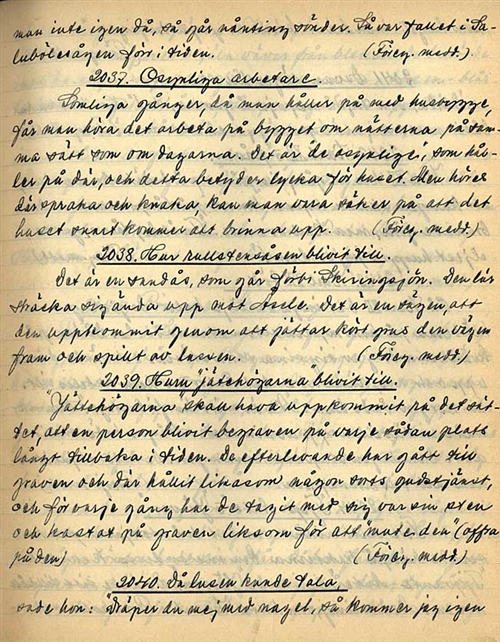 man inte igen då, så går nånting sönder. Så var fallet i Sa-
lubölesågen förr i tiden. (Föreg. medd.)
2037. Osynliga arbetare.
Somliga gånger, då man håller på med husbygge,
får man höra det arbeta på bygget om nätterna på sam-
ma sätt som om dagarna. Det är "de osynlige", som hål-
ler på där, och detta betyder lycka för huset. Men hörs
där spraka och knaka, kan man vara säker på att det
huset snart kommer att brinna upp. (Föreg. medd.)
2038. Hur rullstensåsen blivit till.
Det är en sandås, som går förbi Skiringsjön. Den lär
sträcka sig ända upp mot Åsele. Det är en sägen, att
den uppkommit genom att jättar kört grus den vägen
fram och spillt av lassen. (Föreg. medd.)
2039. Huru "jättehögarna" blivit till.
"Jättehögarna" skall hava uppkommit på det sät-
tet, att en person blivit begraven på varje sådan plats
långt tillbaka i tiden. De efterlevande har gått till
graven och där hållit liksom någon sorts gudstjänst,
och för varje gång har de tagit med sig var sin sten
och kastat på graven liksom för att "muta den" (offra
på den) (Föreg. medd.)
2040. Då lusen kunde tala,
sade hon: "Dräper du mej med nagel, så kommer jag igen